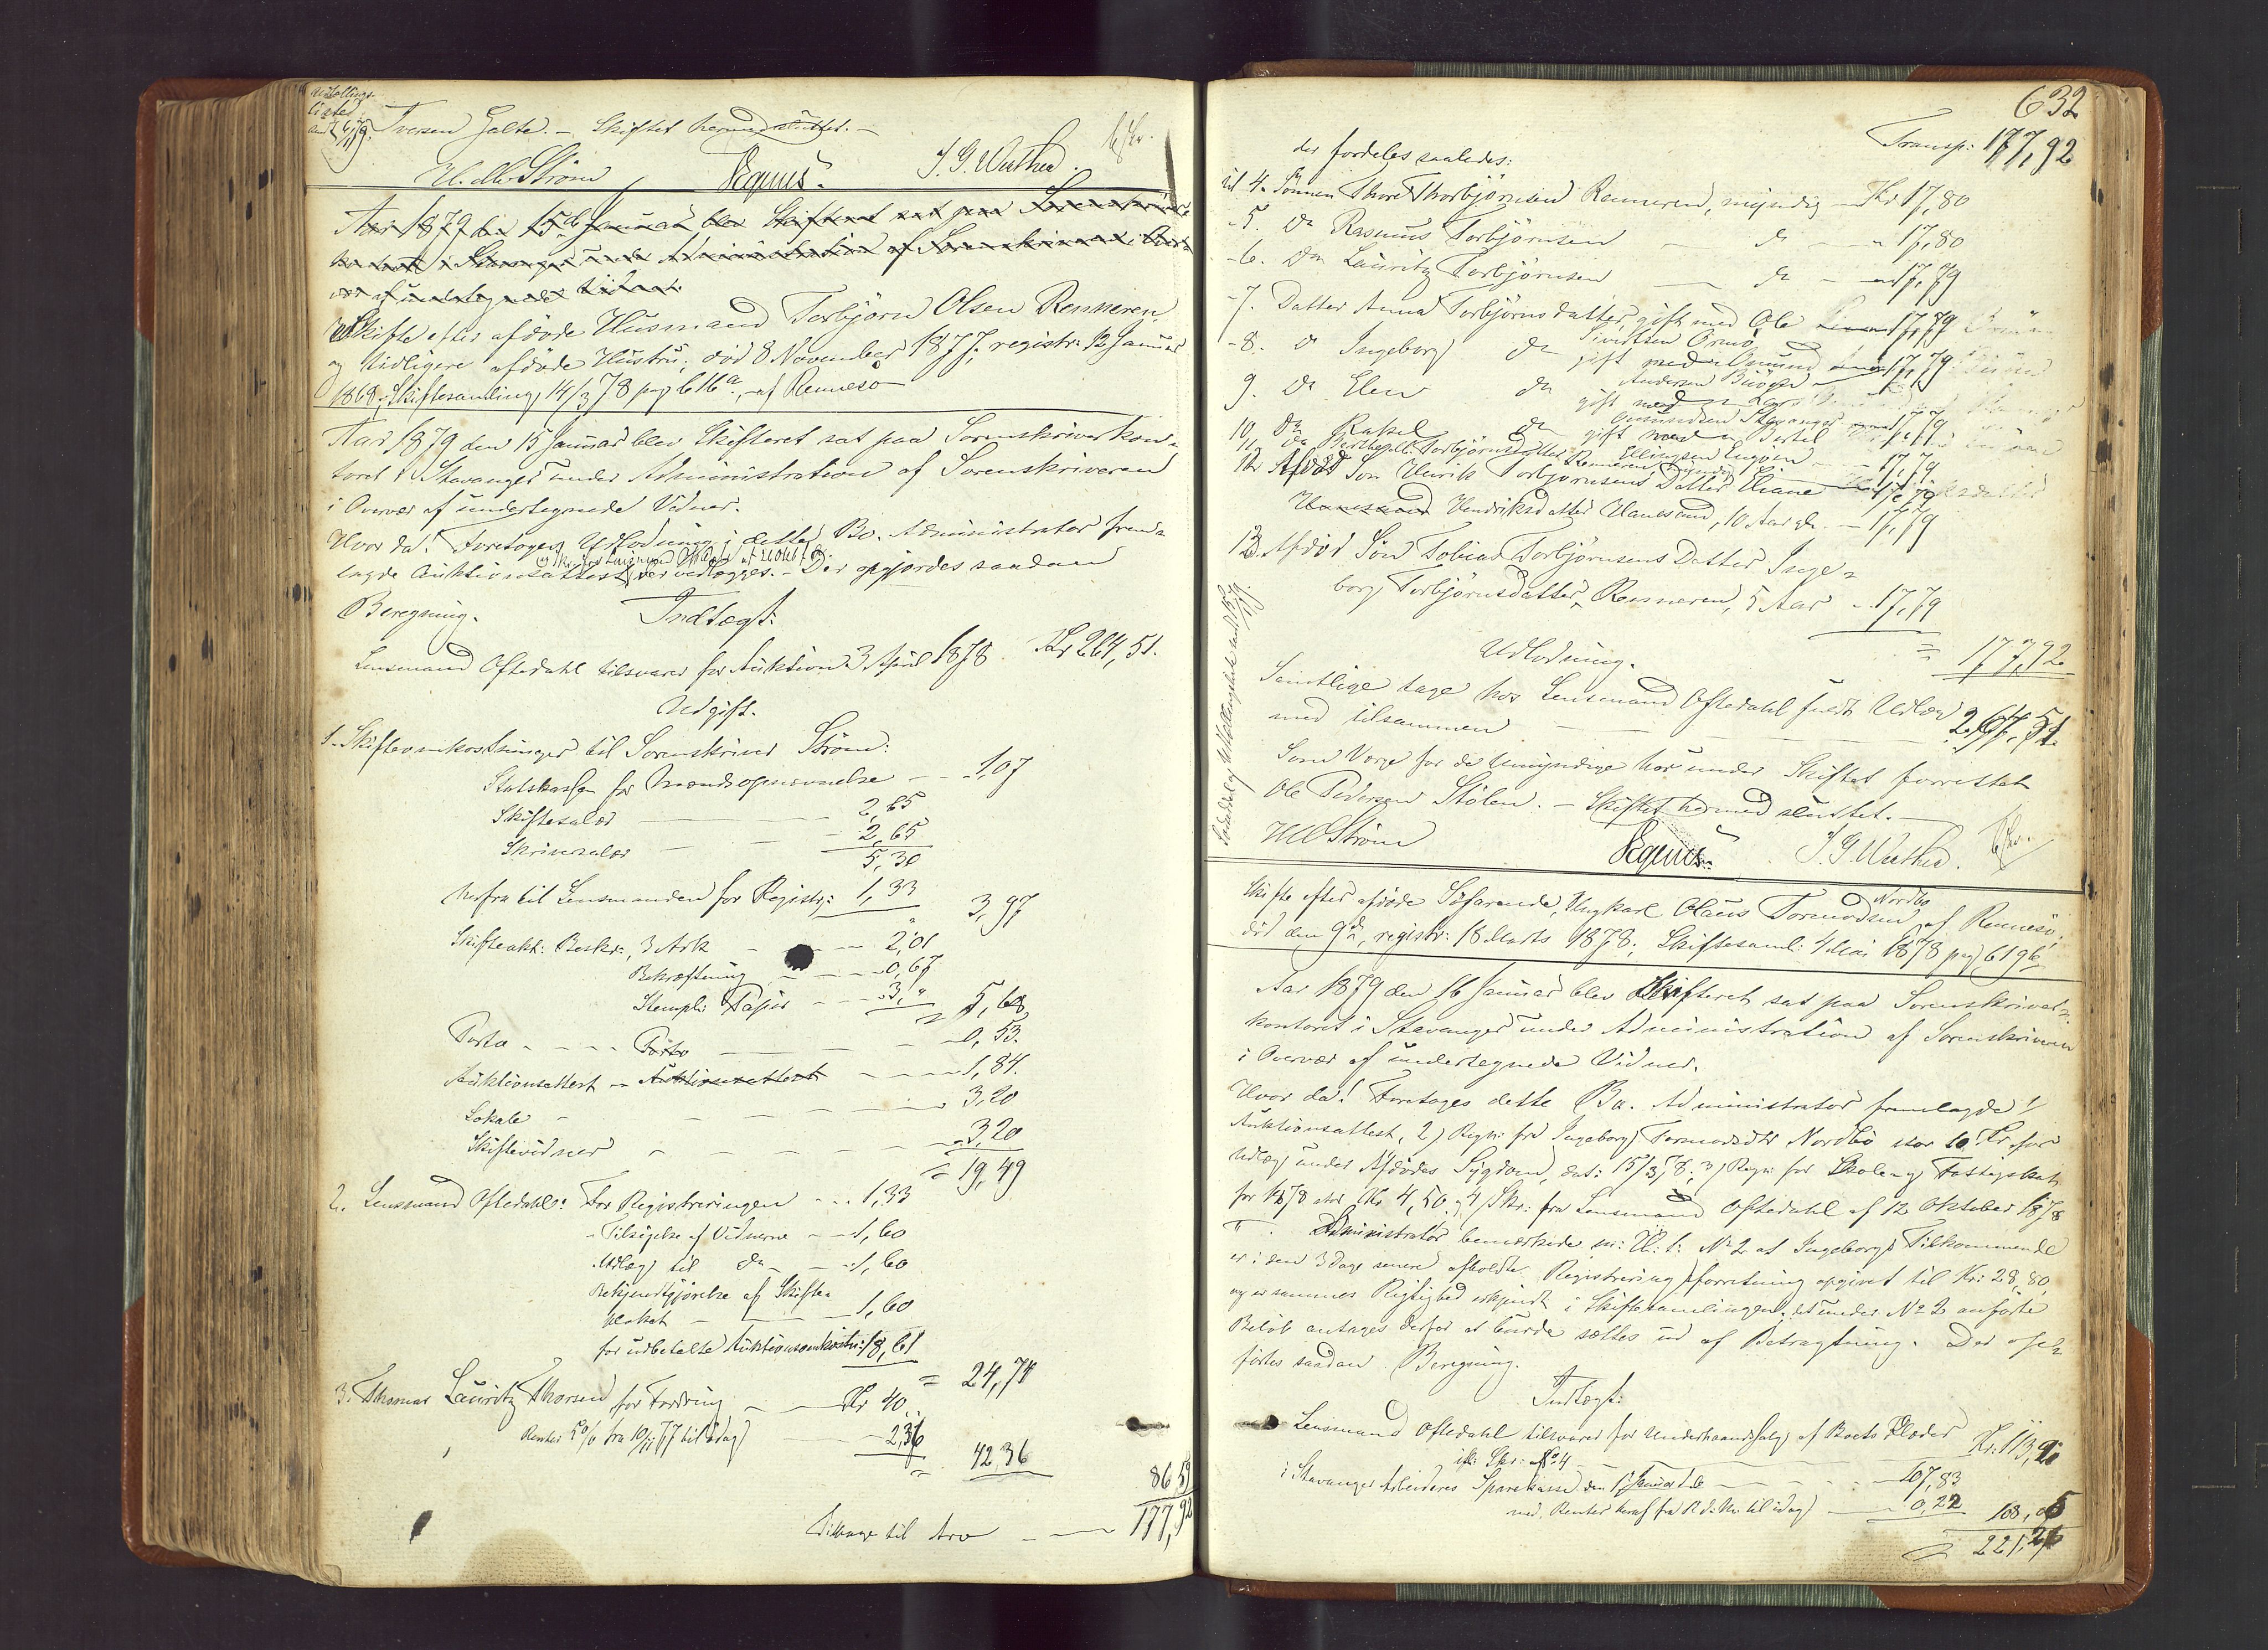 Udlodnings-
liste
Iversen Galte. – Skiftet hermed sluttet. –
H. M. Strøm Seqvus. J. G. Wathne.
Aar 1879 den 15de Januar blev Skifteret sat paa Sorenskriver-
kontoret i Stavanger under Administration af Sorenskriveren i Over-
vær af undertegnede Vidner.
Skifte efter afdøde Husmand Torbjørn Olsen Renneren
og tidligere afdøde Hustru, død 8 November 1877, registr: 12 Januar
1868, Skiftesamling 14/3 78 pag 616a, af Rennesø
Aar 1879 den 15 Januar blev Skifteret sat paa Sorenskriverkon-
toret i Stavanger under Administration af Sorenskriveren
i Overvær af undertegnede Vidner.
Hvor da! Foretoges Udlodning i dette Bo. Administrator frem-
lagde Auktionsattest, der vedlægges. – Der opgjordes saadan
Beregning.
Indtægt:
Lensmand Oftedahl tilsvarer for Auktion 3 April 1878 Kr 264,51.
Udgift.
1. Skifteomkostninger til Sorenskriver Strøm:
Statskassen for Mændsopnævnelse – – 1,07
Skiftesalær – – 2,65
Skriversalær – – 2,65
5,30
herfra til Lensmanden for Registr: 1,33
3,97
Skifteakt: Beskr:, 3 Ark – – 2,01
Bekræftning – – 0,67
Stempl: Papir – – 3,"
= 5,68
Porto – – – Porto – – 0,53.
Auktionsattest – Auktionsattest – – 1,84.
Lokale – – 3,20
Skiftevidner – – 3,20
= 19,49
2. Lensmand Oftedahl: For Registreringen – – 1,33
– Tilsigelse af Vidnerne – – 1,60
Udlæg til do – – 1,60
Bekjendtgjørelse af Skifte-
plakat – – 1,60
for udbetalte Auktionsomkostn: 18,61
= 24,74
3. Thomas Lauritz Thorsen for Fordring – – Kr 40..
Renter 5% fra 10/11 77 til idag – – 2,36
= 42,36
86,59
Tilbage til Arv – – 177,92
632
Transp: 177,92
der fordeles saaledes:
til 4. Sønnen Thore Thorbjørnsen Renneren, myndig – Kr 17,80
- 5. Do Rasmus Torbjørnsen – do – " 17,80
- 6. Do Lauritz Torbjørnsen – do – " 17,79
- 7. Datter Anna Torbjørnsdatter, gift med Ole 17,79
Sivertsen Ormø
- 8. Do Ingeborg do gift med Osmund 17,79
Andersen Buøen
9. Do Elen do gift med Lars
Gudmundsen Stavanger 17,79
10. Do Rakel do gift med Bertel
Ellingsen Engøen – 17,79
11. Do Berthe Torbjørnsdatter Renneren, myndig 17,79
12. Afdød Søn Henrik Torbjørnsens Datter Eliane
Hendriksdatter Hanesund, 10 Aar gl. – 17,79
13. Afdød Søn Tobias Torbjørnsens Datter Inge-
borg Torbjørnsdatter Renneren, 5 Aar – 17,79
= 177,92
Udlodning.
Samtlige tage hos Lensmand Oftedahl fuldt Udlæg
med tilsammen – – 264,51.
Som Værge for de Umyndige har under Skiftet forrettet
Ole Pedersen Stølen. – Skiftet hermed sluttet. –
H M Strøm Seqvus. J. G. Wathne.
Skifte efter afdøde Søfarende, Ungkarl Claus Tormodsen Nordbø af Rennesø,
død den 9de, registr: 18 Marts 1878; Skiftesaml: 1 Mai 1878 pag 619b
Aar 1879 den 16 Januar blev Skifteret sat paa Sorenskriver-
kontoret i Stavanger under Administration af Sorenskriveren
i Overvær af undertegnede Vidner.
Hvor da! Foretoges dette Bo. Administrator fremlagde 1)
Auktionsattest, 2) Regn: fra Ingeborg Tormodsdtr Nordbø stor 10 Kr. for
Udlæg under Afdødes Sygdom, dat: 15/3 78; 3) Regn: for Skole og Fattigskat
for 1878 stor Kr 4,50. og 4) Skr: fra Lensmand Oftedahl af 12 Oktober 1878
Administrator bemærkede m: H: t: No 2 at Ingeborgs Tilkommende
er i den 3 Dage senere afholdte Registreringsforretning opgivet til Kr: 28,80,
og er sammes Rigtighed erkjendt i Skiftesamlingen; det under No 2 anførte
Beløb antages derfor at burde sættes ud af Betragtning. Der opsei-
førtes saadan Beregning.
Indtægt:
Lensmand Oftedahl tilsvarer for Underhaandssalg af Boets Klæder
ifl: Skr: No 4 – – Kr: 113,20
i Stavanger Arbeideres Sparekasse den 1 Januar – – 107,83
med Renter heraf fra til idag – – 0,22 108,05
= 221,25